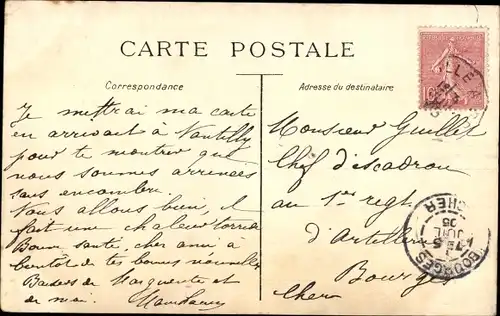 CARTE POSTALE
Correspondance
Je mettrai ma carte
en arrivant à Nantilly
pour te montrer que
nous sommes arrivées
sans encombre
Nous allons bien, il
fait une chaleur torride
Bonne santé, cher ami à
bientôt de tes bonnes nouvelles
Baisers de Marguerite et
de moi.
Adresse du destinataire
Monsieur Guillet
Chef d'escadron
au 1er regt
d'Artillerie
Bourges
Cher
10
BOURGES
CHER
JUIL
05